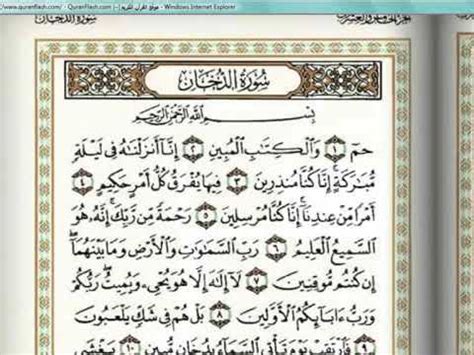 www.quranflash.com/ - QuranFlash.com | موقع القرآن الكريم - Windows Internet Explorer
سُورَةُ الدُّخَانِ
سُورَةُ الدُّخَانِ
بِسْمِ ٱللَّهِ ٱلرَّحْمَٰنِ ٱلرَّحِيمِ
حمٓ ١ وَٱلْكِتَٰبِ ٱلْمُبِينِ ٢ إِنَّآ أَنزَلْنَٰهُ فِى لَيْلَةٍ
مُّبَٰرَكَةٍ إِنَّا كُنَّا مُنذِرِينَ ٣ فِيهَا يُفْرَقُ كُلُّ أَمْرٍ حَكِيمٍ ٤
أَمْرًا مِّنْ عِندِنَآ إِنَّا كُنَّا مُرْسِلِينَ ٥ رَحْمَةً مِّن رَّبِّكَ إِنَّهُۥ هُوَ
ٱلسَّمِيعُ ٱلْعَلِيمُ ٦ رَبِّ ٱلسَّمَٰوَٰتِ وَٱلْأَرْضِ وَمَا بَيْنَهُمَآ
إِن كُنتُم مُّوقِنِينَ ٧ لَآ إِلَٰهَ إِلَّا هُوَ يُحْىِۦ وَيُمِيتُ رَبُّكُمْ
وَرَبُّ ءَابَآئِكُمُ ٱلْأَوَّلِينَ ٨ بَلْ هُمْ فِى شَكٍّ يَلْعَبُونَ
٩ فَٱرْتَقِبْ يَوْمَ تَأْتِى ٱلسَّمَآءُ بِدُخَانٍ مُّبِينٍ ١٠ يَغْشَى